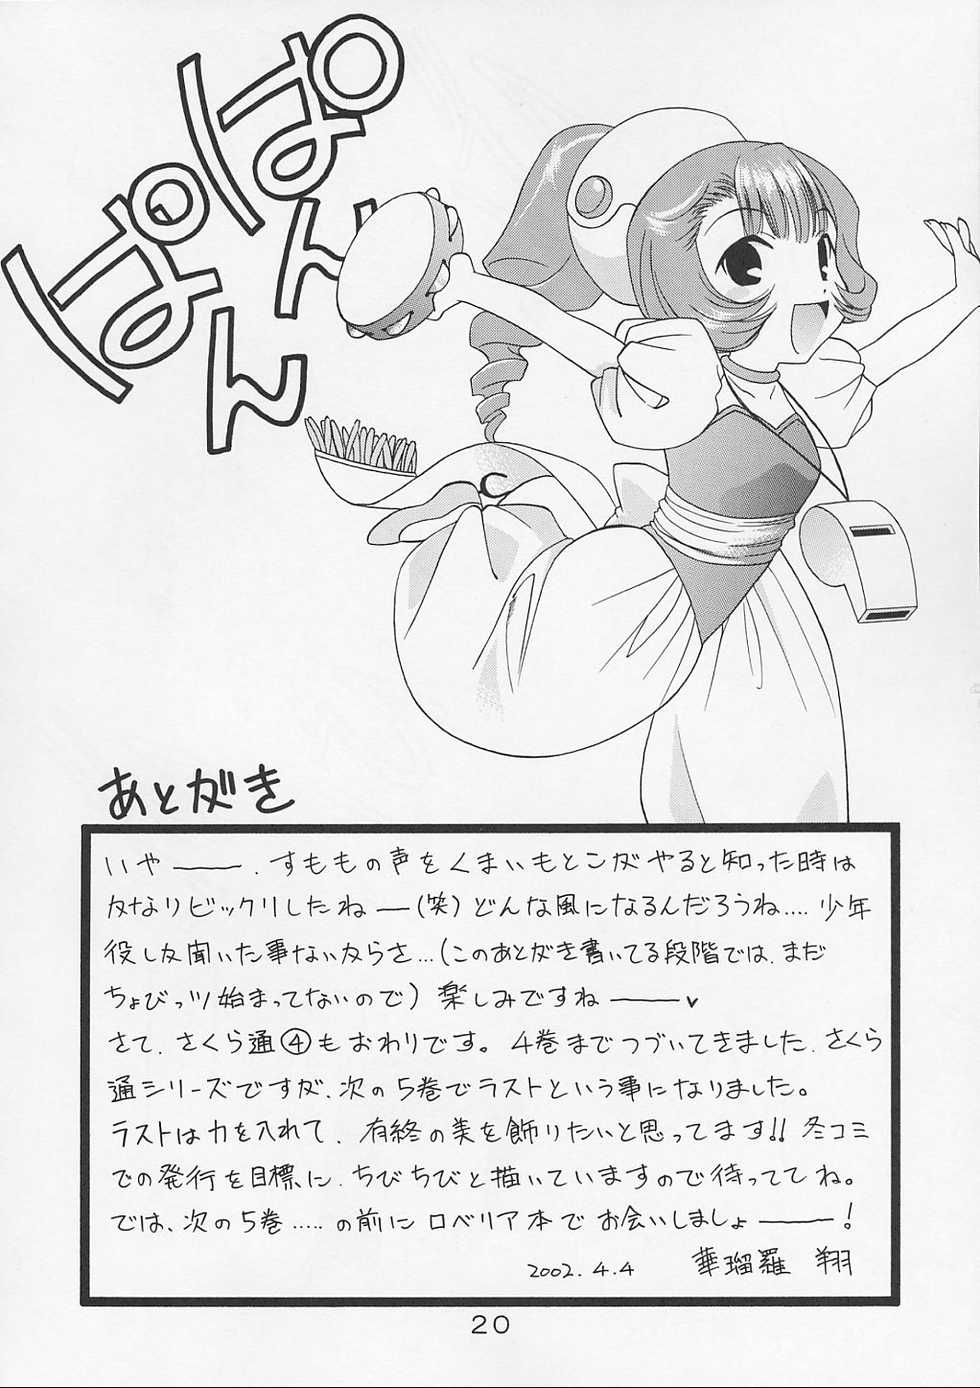 ぱぱんぱん
あとがき
いや――、すももの声をくまいもとこがやると知った時は
かなりビックリしたね―(笑)どんな風になるんだろうね‥‥少年
役しか聞いた事ないからさ…(このあとがき書いてる段階では、まだ
ちょびっツ始まってないので)楽しみですね――♥
さて、さくら通④もおわりです。4巻までつづいてきました、さくら
通シリーズですが、次の5巻でラストという事になりました。
ラストは力を入れて、有終の美を飾りたいと思ってます!!冬コミ
での発行を目標に、ちびちびと描いていますので待っててね。
では、次の5巻‥‥‥の前にロベリア本でお会いしましょ――!
2002.4.4 華瑠羅 翔
20